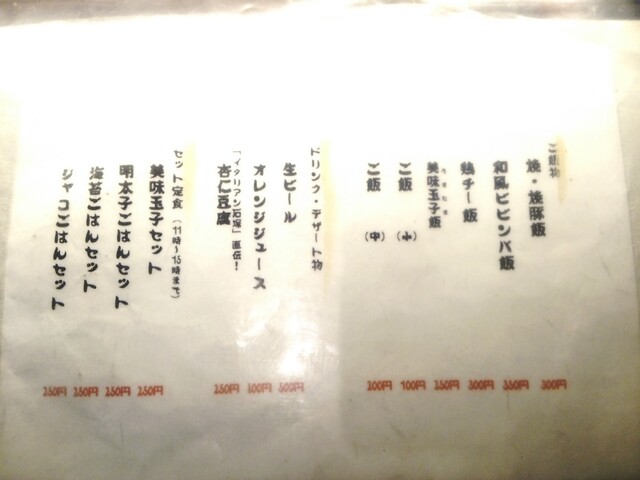 ご飯物
焼・焼豚飯 300円
和風ビビンバ飯 350円
鶏チー飯 300円
美味玉子飯 250円
ご飯（小） 100円
ご飯（中） 200円
ドリンク・デザート物
生ビール 500円
オレンジジュース 100円
「イタリアン石塚」直伝！
杏仁豆腐 250円
セット定食（11時〜15時まで）
美味玉子セット 250円
明太子ごはんセット 250円
海苔ごはんセット 250円
ジャコごはんセット 250円